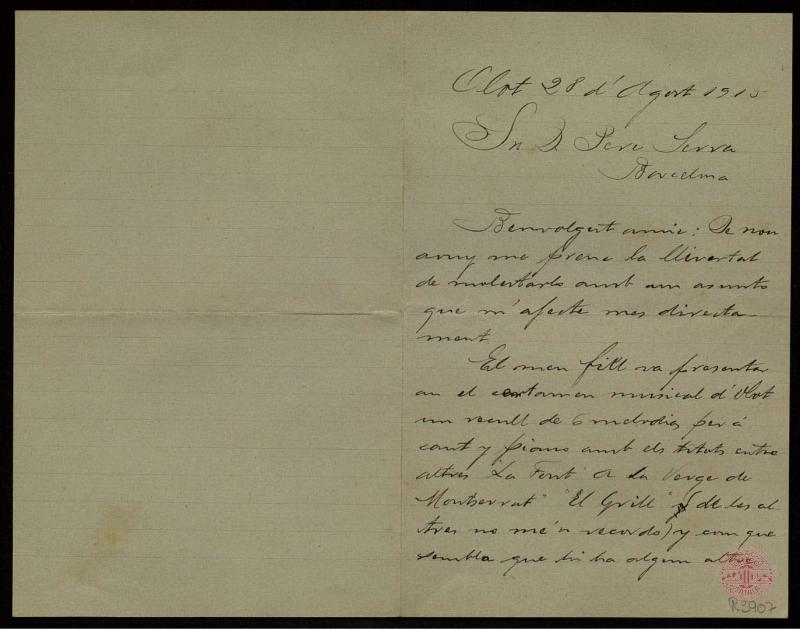 Olot 28 d'Agost 1915
Sn D. Pere Serra
Barcelona
Benvolgut amic: De nou
avuy me prenc la llivertat
de molestarlo amb un asunto
que m'afecte mes directa-
ment.
El meu fill va presentar
an el certamen musical d'Olot
un recull de 6 melodias per á
cant y piano amb els titols entre
altres "La Font" A la Verge de
Montserrat" "El Grill" (de les al
tres no me'n recordo) y com que
sembla que hi ha algun altre
R.3907